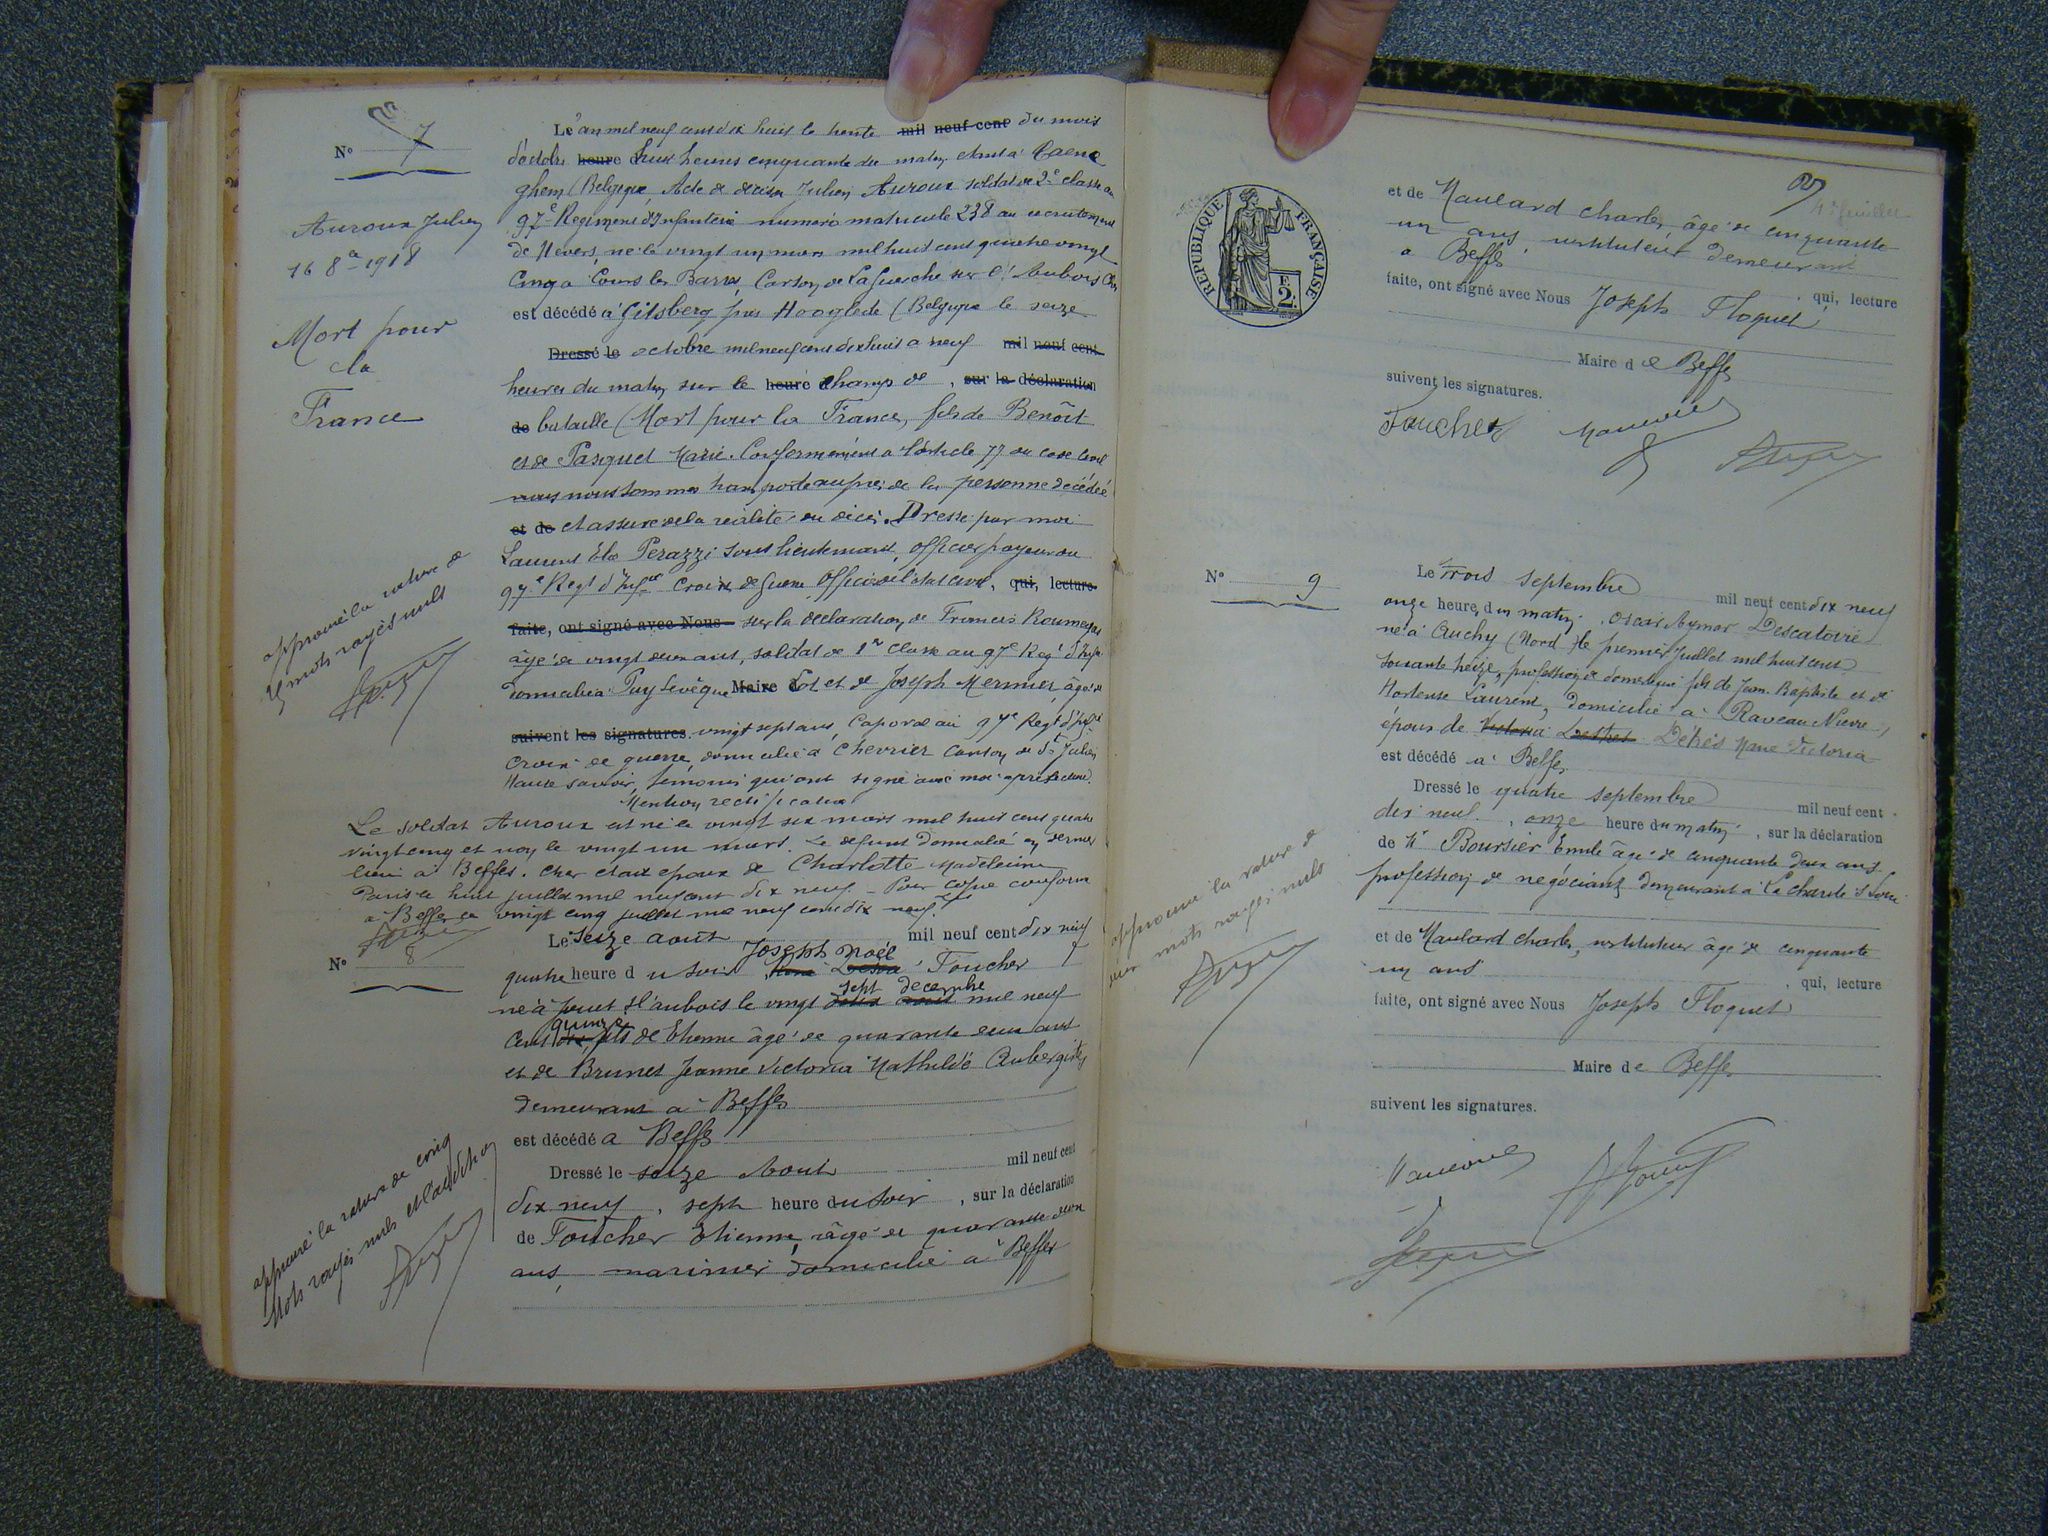 No 7
Auroux Julien
16 8bre 1918
Mort pour
la
France
approuvé la rature de
mots rayés nuls
L'an mil neuf cent dix huit le trente mil neuf cent du mois
d'octobre heure d huit heures cinquante du matin étant à
ghem (Belgique, Acte de décès de Julien Auroux soldat de 2e classe au
97e Régiment d'Infanterie numéro matricule 238 au recrutement
de Nevers, né le vingt un mars mil huit cent quatre vingt
cinq à Cours les Barres, Canton de La Guerche sur l'Aubois Cher
est décédé à Gitsberg près Hooglede (Belgique le seize
Dressé le octobre mil neuf cent dix huit à neuf mil neuf cent
heures du matin sur le heure champ de , sur la déclaration
de bataille (Mort pour la France, fils de Benoît
et de Pasquet Marie. Conformément à l'article 77 du code civil
nous nous sommes transporté auprès de la personne décédée
et de et assuré de la réalité du décès. Dressé par moi
Laurent Perazzi sous lieutenant, officier payeur au
97e Regt d'Infrie Croix de Guerre Officier de l'état civil, qui, lecture
faite, ont signé avec Nous sur la déclaration de Francis Roumegas
âgé de vingt deux ans, soldat de 1re Classe au 97e Regt d'Infie
domicilié à Puy Levêque Maire d Lot et de Joseph Mermier, âgé de
suivent les signatures. vingt sept ans, Caporal au 97e Regt d'Infie
croix de guerre, domicilié à Chevrier Canton de St Julien
Haute Savoie, témoins qui ont signé avec moi après lecture.
Mention rectificative
Le soldat Auroux est né le vingt six mars mil huit cent quatre
vingt cinq et non le vingt un mars. Le défunt domicilié en dernier
lieu à Beffes. Cher était époux de Charlotte Madeleine
Paris le huit juillet mil neuf cent dix neuf - Pour copie conforme
à Beffes ce vingt cinq juillet mil neuf cent dix neuf.
No 8
Le seize août mil neuf cent dix neuf
quatre heure d u soir Joseph Noël Foucher
né à Jouet s/ l'aubois le vingt sept décembre mil neuf
cent quinze fils de Etienne âgé de quarante deux ans
et de Brunet Jeanne Victoria Mathilde Aubergiste
demeurant à Beffes
est décédé à Beffes
Dressé le seize Août mil neuf cent
dix neuf, sept heure du soir , sur la déclaration
de Foucher Etienne, âgé de quarante deux
ans, marinier domicilié à Beffes
approuvé la rature de cinq
mots rayés nuls et l'addition
4e feuillet
RÉPUBLIQUE FRANÇAISE
E 2.
et de Maulard Charles, âgé de cinquante
un ans, instituteur demeurant
à Beffes , qui, lecture
faite, ont signé avec Nous Joseph Floquet
Maire d e Beffes
suivent les signatures.
Foucher
No 9
Le trois septembre mil neuf cent dix neuf
onze heure, du matin, Oscar Aymar Descatoire
né à Auchy (Nord) le premier juillet mil huit cent
soixante treize, profession de domestique fils de Jean Baptiste et de
Hortense Laurent, domicilié à Raveau Nièvre,
époux de Detrés Marie Victoria
est décédé à Beffes
Dressé le quatre septembre mil neuf cent
dix neuf, onze heure du matin , sur la déclaration
de Mr Boursier Emile âgé de cinquante deux ans
profession de négociant, demeurant à La Charité s/ Loire
et de Maulard Charles, instituteur âgé de cinquante
un ans , qui, lecture
faite, ont signé avec Nous Joseph Floquet
Maire de Beffes
suivent les signatures.
approuvé la rature de
deux mots rayés nuls